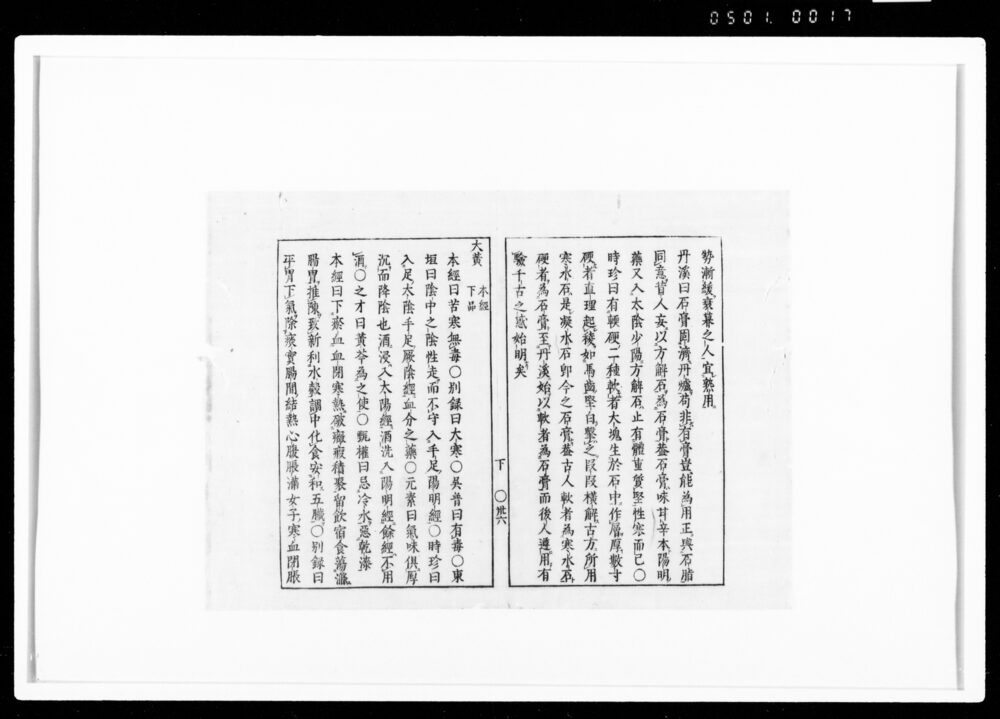 0501.0017
勢漸緩衰暮之人宜熟用
丹溪曰石膏固濟丹爐苟非有膏豈能為用正與石脂
同意昔人妄以方解石為石膏葢石膏味甘辛本陽明
藥又入太陰少陽方解石止有體重質堅性寒而已〇
時珍曰有軟硬二種軟者大塊生於石中作層厚數寸
硬者直理起稜如馬齒堅白擊之段段橫解古方所用
寒水石是凝水石卽今之石膏葢古人軟者為寒水石
硬者為石膏至丹溪始以軟者為石膏而後人遵用有
驗千古之惑始明矣
下 〇卅六
大黃 本經
下品
本經曰苦寒無毒〇別錄曰大寒〇吳普曰有毒〇東
垣曰陰中之陰性走而不守入手足陽明經〇時珍曰
入足太陰手足厥陰經血分之藥〇元素曰氣味俱厚
沉而降陰也酒浸入太陽經酒洗入陽明經餘經不用
酒〇之才曰黃芩為之使〇甄權曰忌冷水惡乾漆
本經曰下瘀血血閉寒熱破癥瘕積聚留飲宿食蕩滌
腸胃推陳致新利水穀調中化食安和五臟〇別錄曰
平胃下氣除痰實腸間結熱心腹脹滿女子寒血閉脹